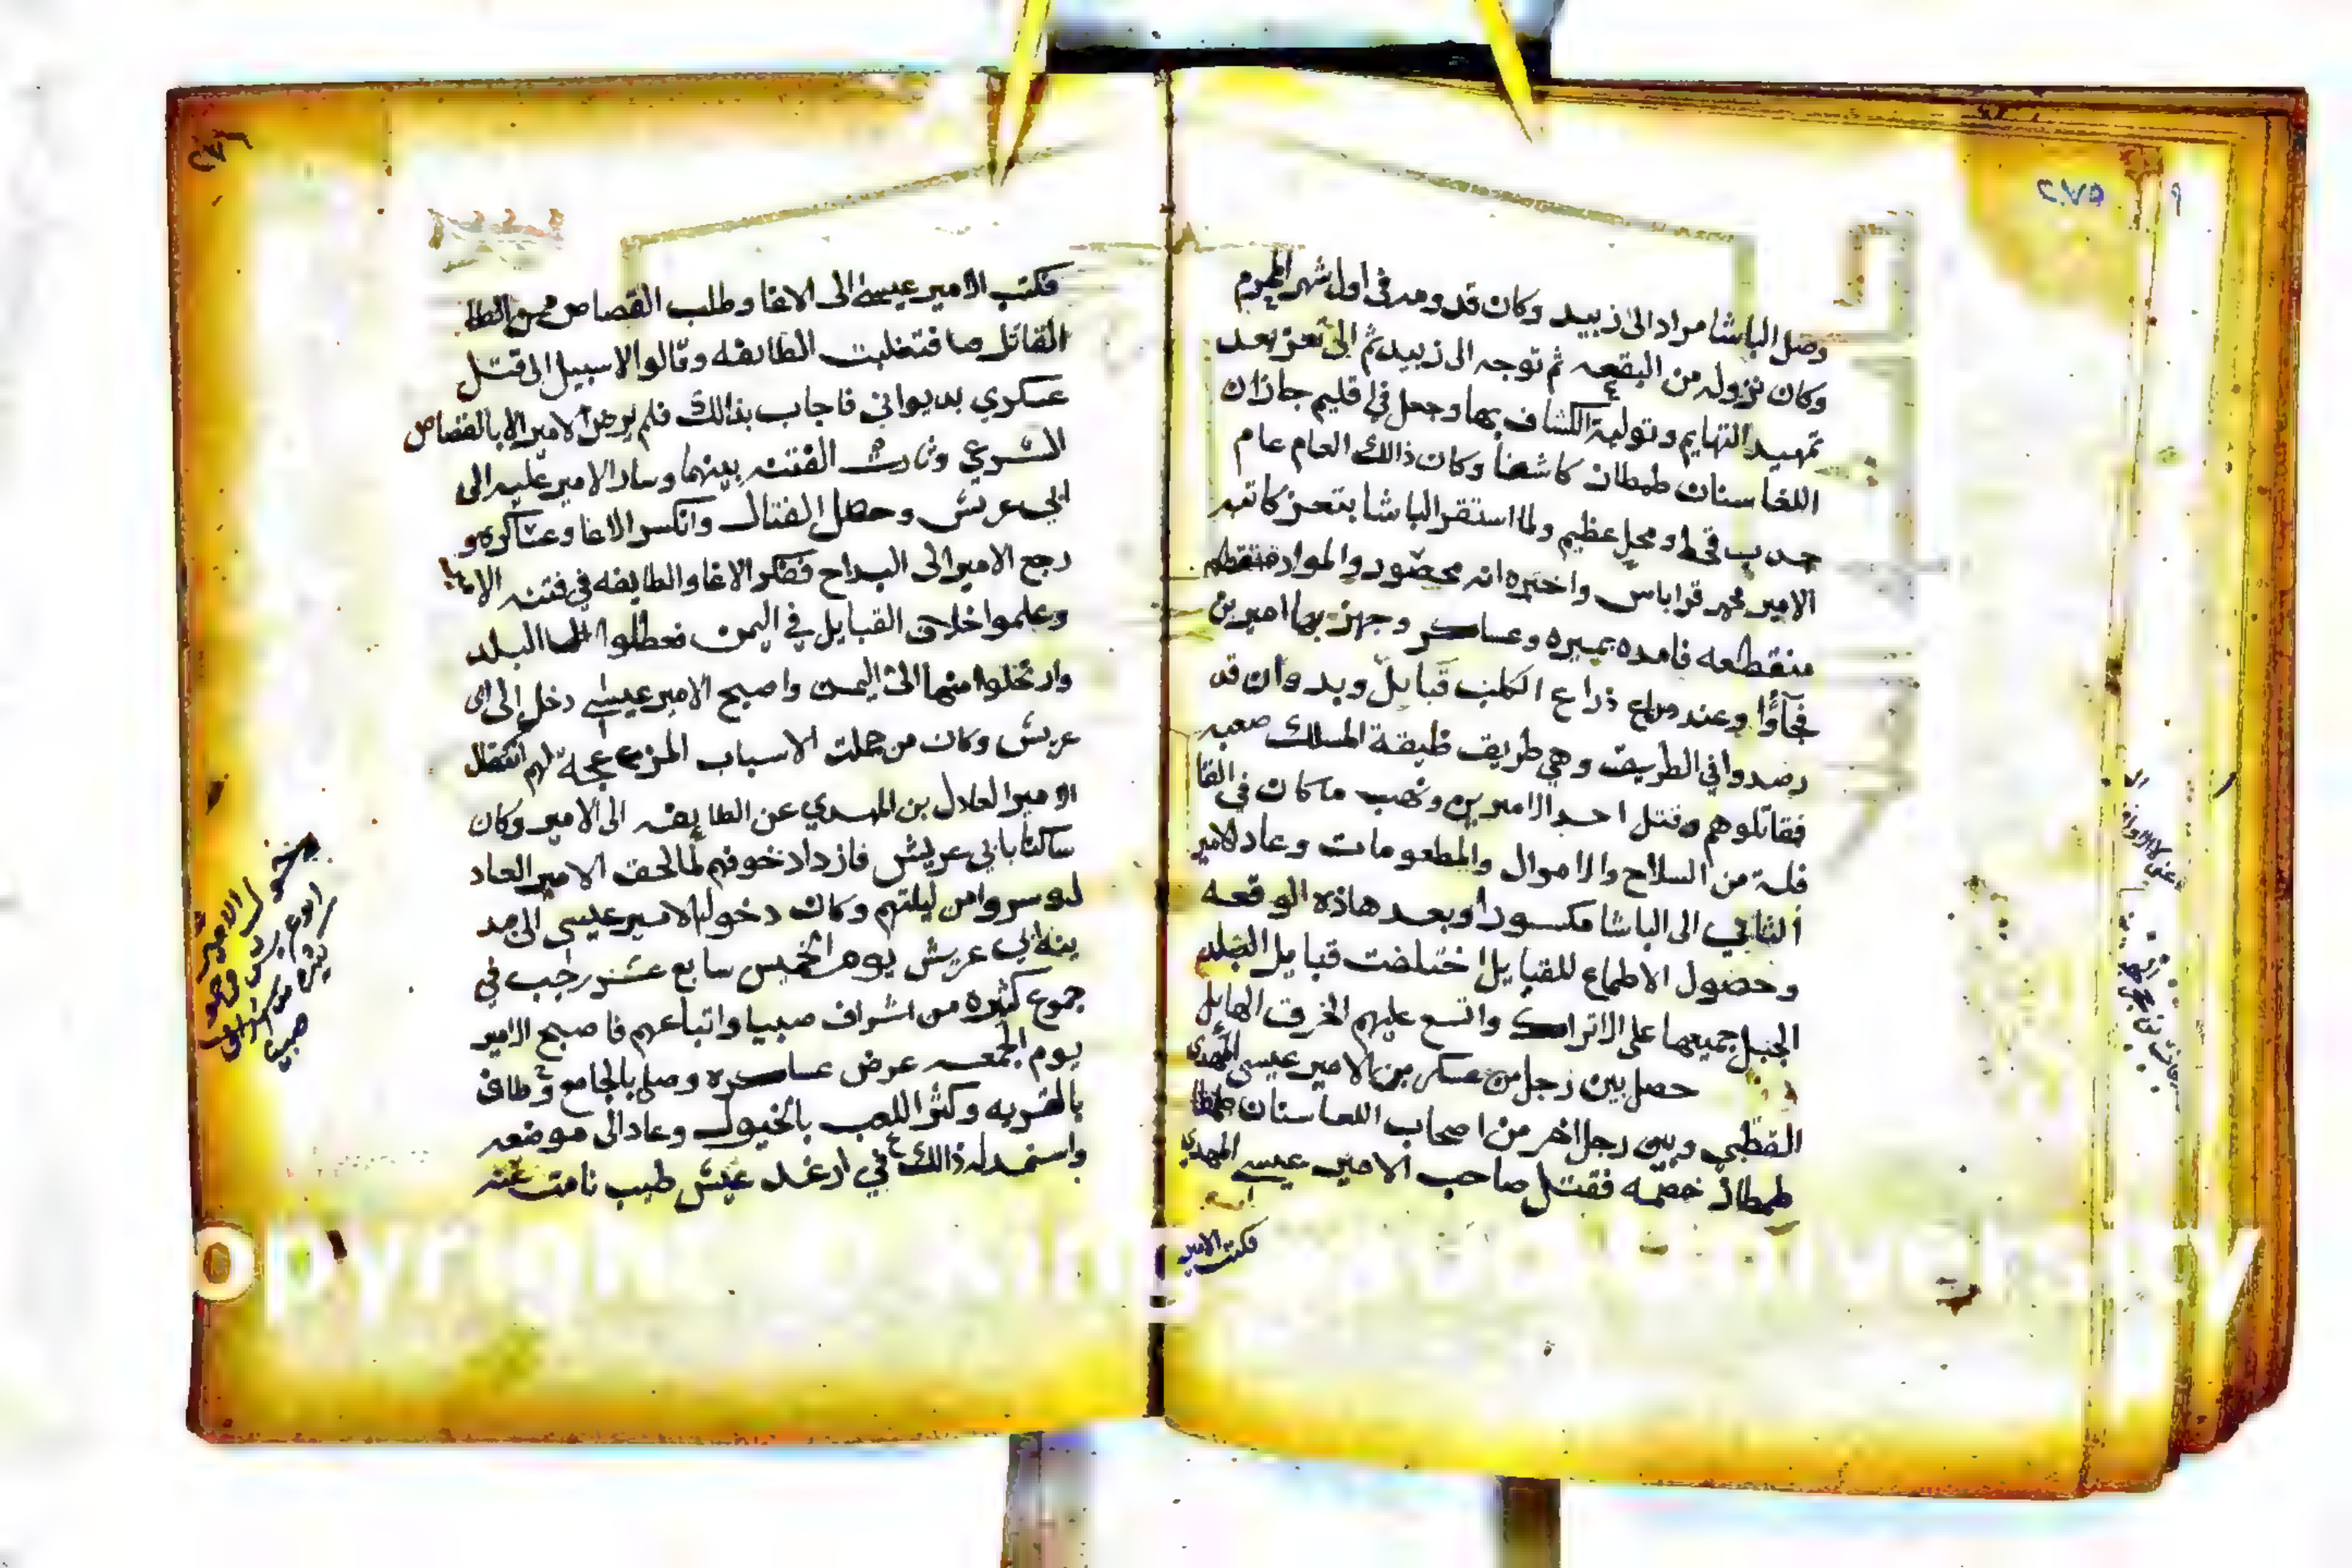 ٢٧٥
وصل الباشا مراد الى زبيد وكان قدومه في اول شهر المحرم
وكان نزوله من البقعه ثم توجه الى زبيد ثم الى تعز بعد
تمهيد التهايم وتولية الكشاف بها وجعل في اقليم جازان
اللغا سنان طمطان كاشفا وكان ذالك العام عام
جدب قحط ومحل عظيم ولما استقر الباشا بتعز كاتبه
الامير محمد قراباس واخبره انه محصور والمواد
منقطعه فامده بميره وعساكر وجهز بها اميرين
فجآؤا وعند ذراع الكلب قبايل وبدوان قد
رصدوا في الطريق وهي طريق ظيقة المسلك صعبه
فقاتلوهم وقتل احد الاميرين ونهب ما كان في القا
فلة من السلاح والاموال والمطعومات وعاد الامير
الثاني الى الباشا مكسورا وبعد هاذه الوقعه
وحصول الاطماع للقبايل اختلفت قبايل البلد
الجبل جميعها على الاتراك واتسع عليهم الخرق الهايل
حصل بين رجل من عسكر الامير عيسى المهدي
القطبي وبين رجل اخر من اصحاب اللغا سنان
طمطان خصمه فقتل صاحب الامير عيسى المهدي
فكتب الامير
٢٧٦
فكتب الامير عيسى الى الاغا وطلب القصاص من الطا
القاتل صا فتغلبت الطايفه وقالوا لا سبيل الى قتل
عسكري بديواني فاجاب بذالك فلم يرض الامير الا بالقصاص
الشرعي وثارت الفتنه بينهما وسار الامير عليه الى
ابي عريش وحصل القتال وانكسر الاغا وعساكره و
رجع الامير الى البداح ففكر الاغا والطايفه في فتنه
وعلموا اخلاق القبايل في اليمن فعطلوا البلد
وارتحلوا منها الى اليمن واصبح الامير عيسى دخل الى ابي
عريش وكان من جملت الاسباب المزعجة لهم انتقال
الامير العادل بن المهدي عن الطايفه الى الامير وكان
ساكنا بابي عريش فازداد خوفهم لما لحق الامير العاد
ل وسروا من ليلتهم وكان دخول الامير عيسى الى مد
ينة ابي عريش يوم الخميس سابع عشر رجب في
جموع كثيره من اشراف صبيا واتباعهم فاصبح الامير
يوم الجمعه عرض عساكره وصلى بالجامع وطاف
بالقريه وكثر اللعب بالخيول وعاد الى موضعه
واستمر له ذالك في ارغد عيش طيب نامت عنه
دخول الامير
صبيا